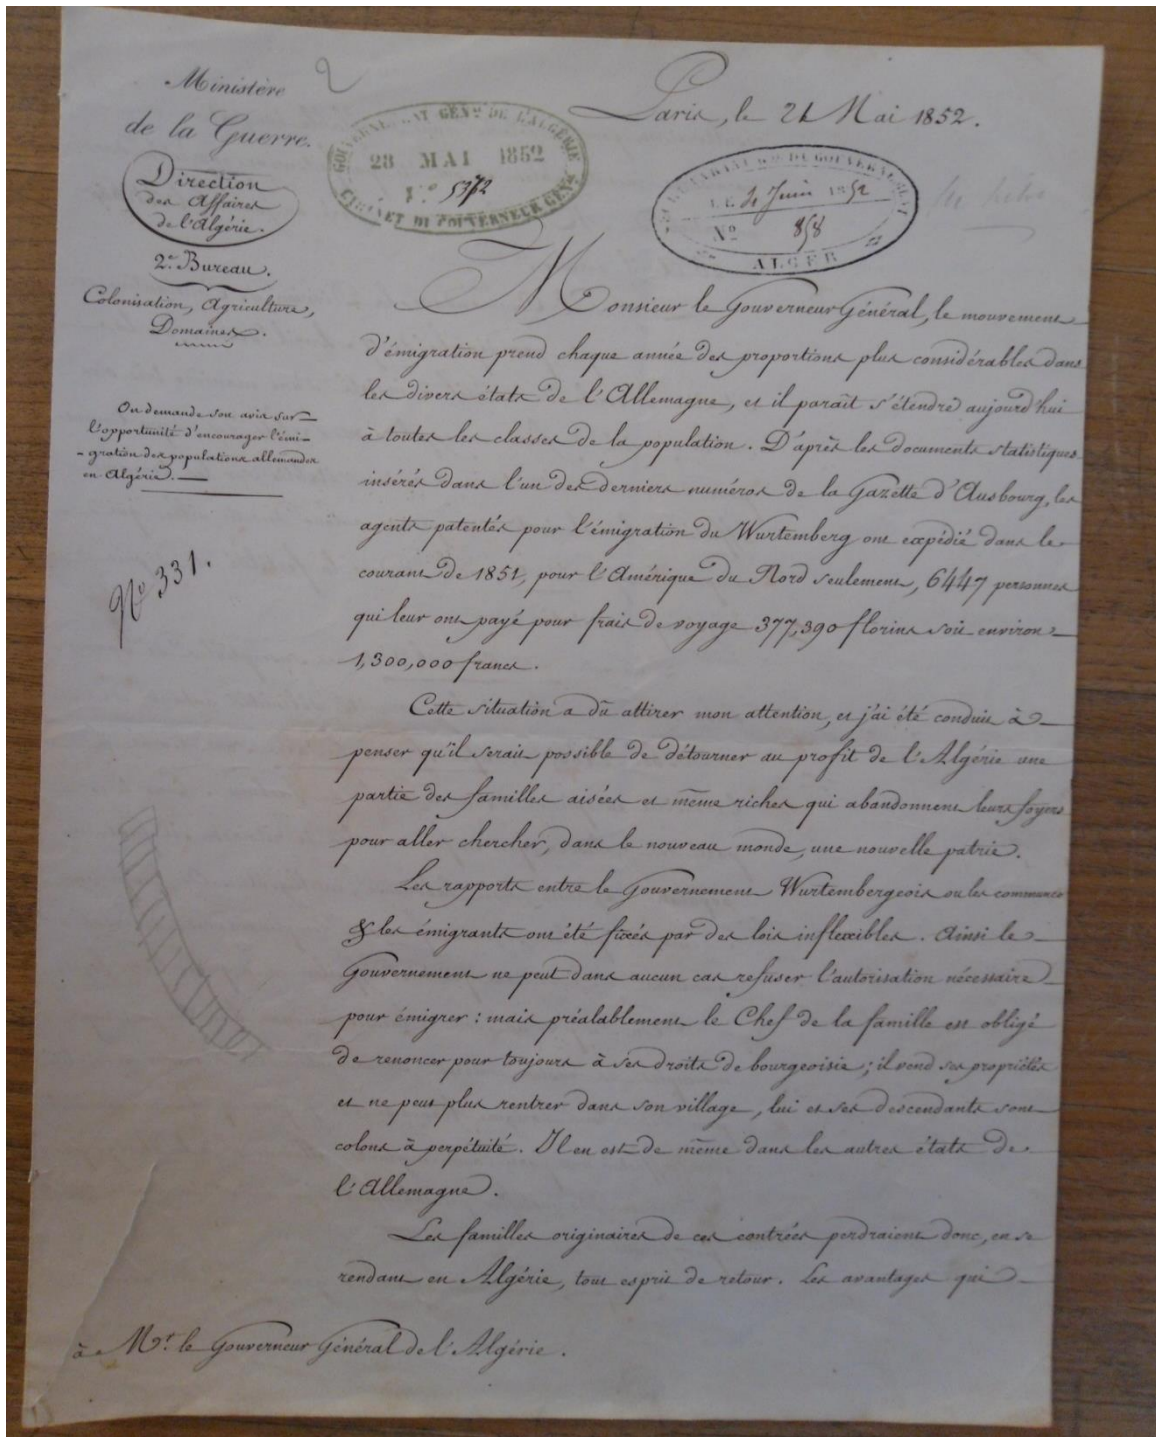 Ministère
de la Guerre.
Direction
des Affaires
de l'Algérie.
2e. Bureau.
Colonisation, Agriculture,
Domaines.
On demande son avis sur
l'opportunité d'encourager l'émi-
-gration des populations allemandes
en Algérie.
No 331.
2
GOUVERNEMENT GÉNAL DE L'ALGÉRIE
28 MAI 1852
No 5372
CABINET DU GOUVERNEUR GÉNAL
Paris, le 21 Mai 1852.
SECRÉTARIAT GAL DU GOUVERNEMENT
LE 4 Juin 1852
No 858
ALGER
Monsieur le Gouverneur Général, le mouvement
d'émigration prend chaque année des proportions plus considérables dans
les divers états de l'Allemagne, et il paraît s'étendre aujourd'hui
à toutes les classes de la population. D'après les documents statistiques
insérés dans l'un des derniers numéros de la Gazette d'Ausbourg, les
agents patentés pour l'émigration du Wurtemberg ont expédié dans le
courant de 1851, pour l'Amérique du Nord seulement, 6447 personnes
qui leur ont payé pour frais de voyage 377,390 florins soit environ
1,300,000 francs.
Cette situation a dû attirer mon attention, et j'ai été conduit à
penser qu'il serait possible de détourner au profit de l'Algérie une
partie des familles aisées et même riches qui abandonnent leurs foyers
pour aller chercher, dans le nouveau monde, une nouvelle patrie.
Les rapports entre le Gouvernement Wurtembergeois ou les communes
& les émigrants ont été fixés par des lois inflexibles. Ainsi le
Gouvernement ne peut dans aucun cas refuser l'autorisation nécessaire
pour émigrer : mais préalablement le Chef de la famille est obligé
de renoncer pour toujours à ses droits de bourgeoisie ; il vend ses propriétés
et ne peut plus rentrer dans son village, lui et ses descendants sont
colons à perpétuité. Il en est de même dans les autres états de
l'Allemagne.
Les familles originaires de ces contrées perdraient donc, en se
rendant en Algérie, tout esprit de retour. Les avantages qui
à Mr. le Gouverneur Général de l'Algérie.